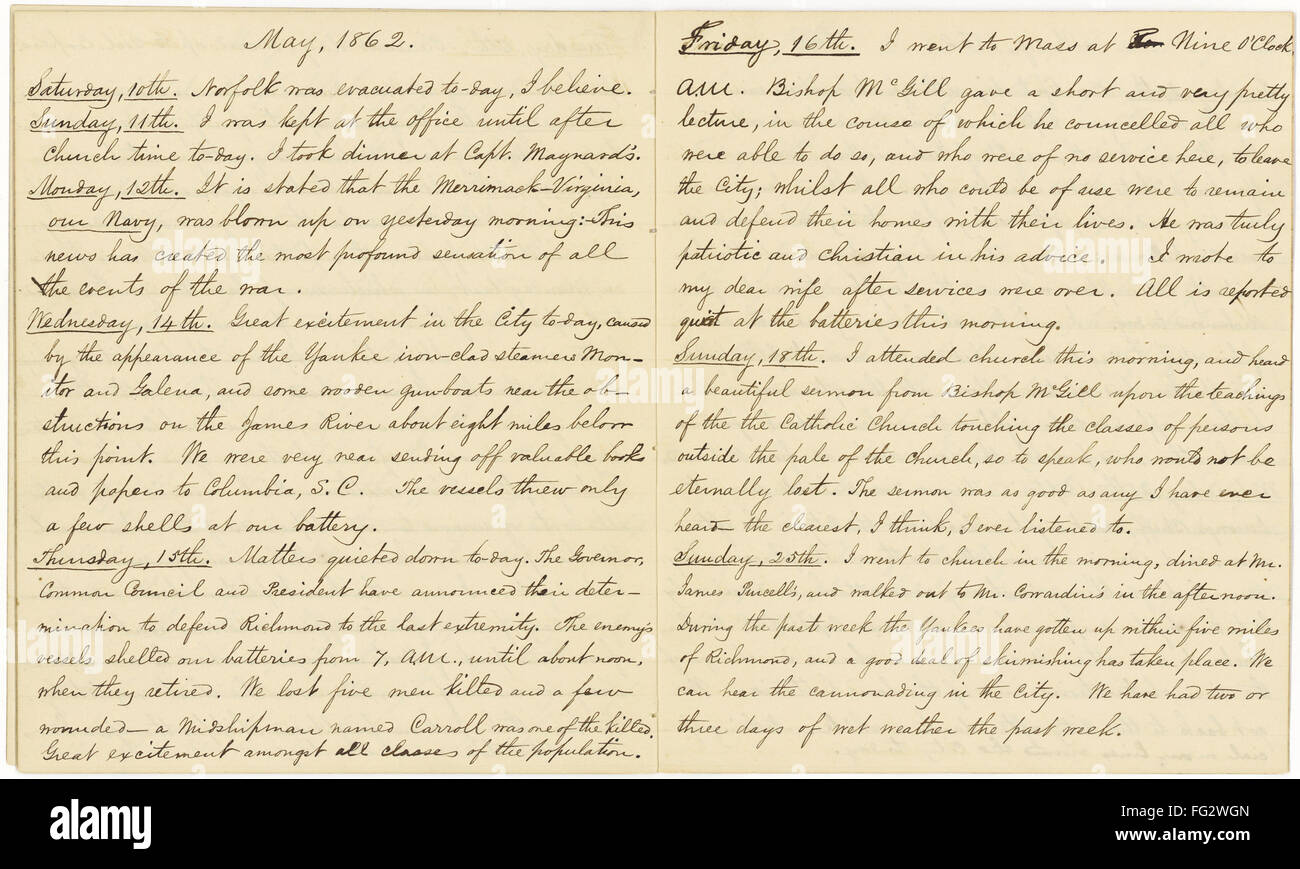 May, 1862.
Saturday, 10th. Norfolk was evacuated to-day, I believe.
Sunday, 11th. I was kept at the office until after
church time to-day. I took dinner at Capt. Maynard's.
Monday, 12th. It is stated that the Merrimack-Virginia,
our Navy, was blown up on yesterday morning: This
news has created the most profound sensation of all
the events of the war.
Wednesday, 14th. Great excitement in the City to-day, caused
by the appearance of the Yankee iron-clad steamers Mon-
itor and Galena, and some wooden gunboats near the ob-
structions on the James River about eight miles below
this point. We were very near sending off valuable books
and papers to Columbia, S.C. The vessels threw only
a few shells at our battery.
Thursday, 15th. Matters quieted down to-day. The Governor,
Common Council and President have announced their deter-
mination to defend Richmond to the last extremity. The enemy's
vessels shelled our batteries from 7, A.M., until about noon,
when they retired. We lost five men killed and a few
wounded — a Midshipman named Carroll was one of the killed.
Great excitement amongst all classes of the population.
Friday, 16th. I went to Mass at Nine O'Clock,
A.M. Bishop McGill gave a short and very pretty
lecture, in the course of which he councelled all who
were able to do so, and who were of no service here, to leave
the City; whilst all who could be of use were to remain
and defend their homes with their lives. He was truly
patriotic and christian in his advice. I wrote to
my dear wife after services were over. All is reported
quiet at the batteries this morning.
Sunday, 18th. I attended church this morning, and heard
a beautiful sermon from Bishop McGill upon the teachings
of the the Catholic Church touching the classes of persons
outside the pale of the church, so to speak, who would not be
eternally lost. The sermon was as good as any I have ever
heard — the clearest, I think, I ever listened to.
Sunday, 25th. I went to church in the morning, dined at Mr.
James Purcell's, and walked out to Mr. Corrardin's in the afternoon.
During the past week the Yankees have gotten up within five miles
of Richmond, and a good deal of skirmishing has taken place. We
can hear the cannonading in the City. We have had two or
three days of wet weather the past week.
alamy
Image ID: FG2WGN
www.alamy.com